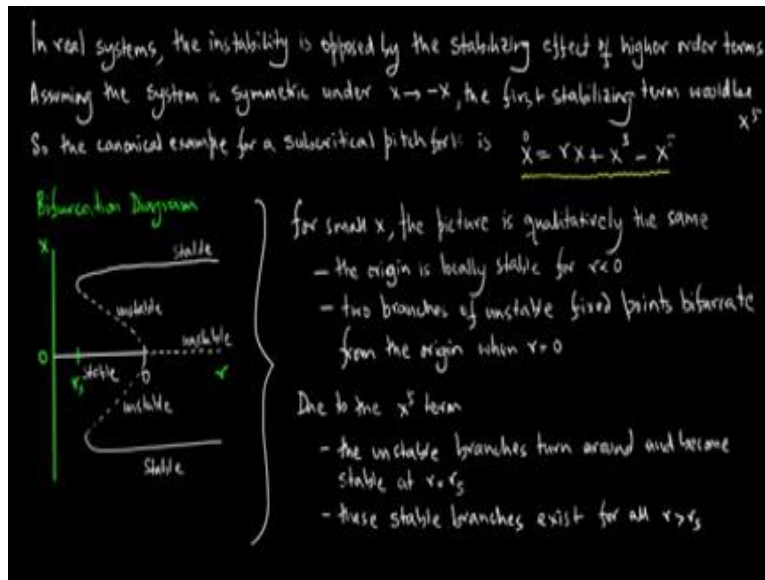 In real systems, the instability is opposed by the stabilizing effect of higher order terms
Assuming the system is symmetric under x → -x, the first stabilizing term would be
x⁵
So the canonical example for a subcritical pitchfork is ẋ = rx + x³ - x⁵
Bifurcation Diagram
x
stable
unstable
0 unstable
r_s stable 0 r
unstable
Stable
for small x, the picture is qualitatively the same
- the origin is locally stable for r<0
- two branches of unstable fixed points bifurcate
from the origin when r=0
Due to the x⁵ term
- the unstable branches turn around and become
stable at r=r_s
- these stable branches exist for all r>r_s